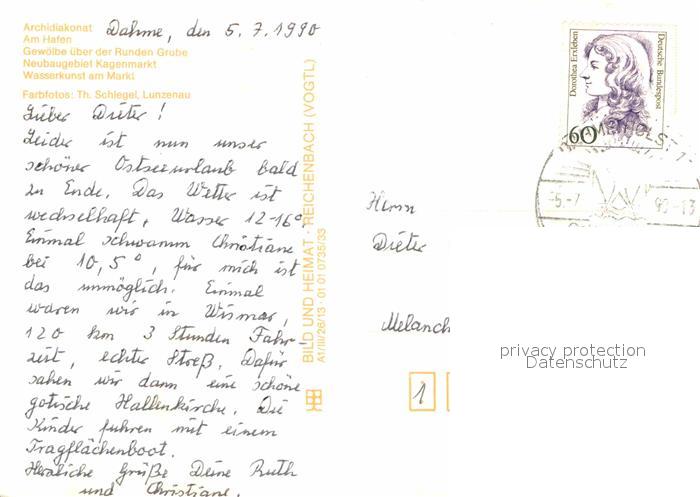 Archidiakonat
Am Hafen
Gewölbe über der Runden Grube
Neubaugebiet Kagenmarkt
Wasserkunst am Markt
Farbfotos: Th. Schlegel, Lunzenau
Dahme, den 5. 7. 1990
Lieber Dieter!
Leider ist nun unser
schöner Ostseeurlaub bald
zu Ende. Das Wetter ist
wechselhaft, Wasser 12-16°
Einmal schwamm Christiane
bei 10,5°, für mich ist
das unmöglich. Einmal
waren wir in Wismar,
120 km 3 Stunden Fahr-
zeit, echter Streß. Dafür
sahen wir dann eine schöne
gotische Hallenkirche. Die
Kinder fuhren mit einem
Tragflächenboot.
Herzliche Grüße Deine Ruth
und Christiane.
BILD UND HEIMAT · REICHENBACH (VOGTL)
A1/III/26/13 · 01 01 0735/33
Dorothea Erxleben
Deutsche Bundespost
60
-5.-7
90-13
Herrn
Dieter
Melanch
1
privacy protection
Datenschutz